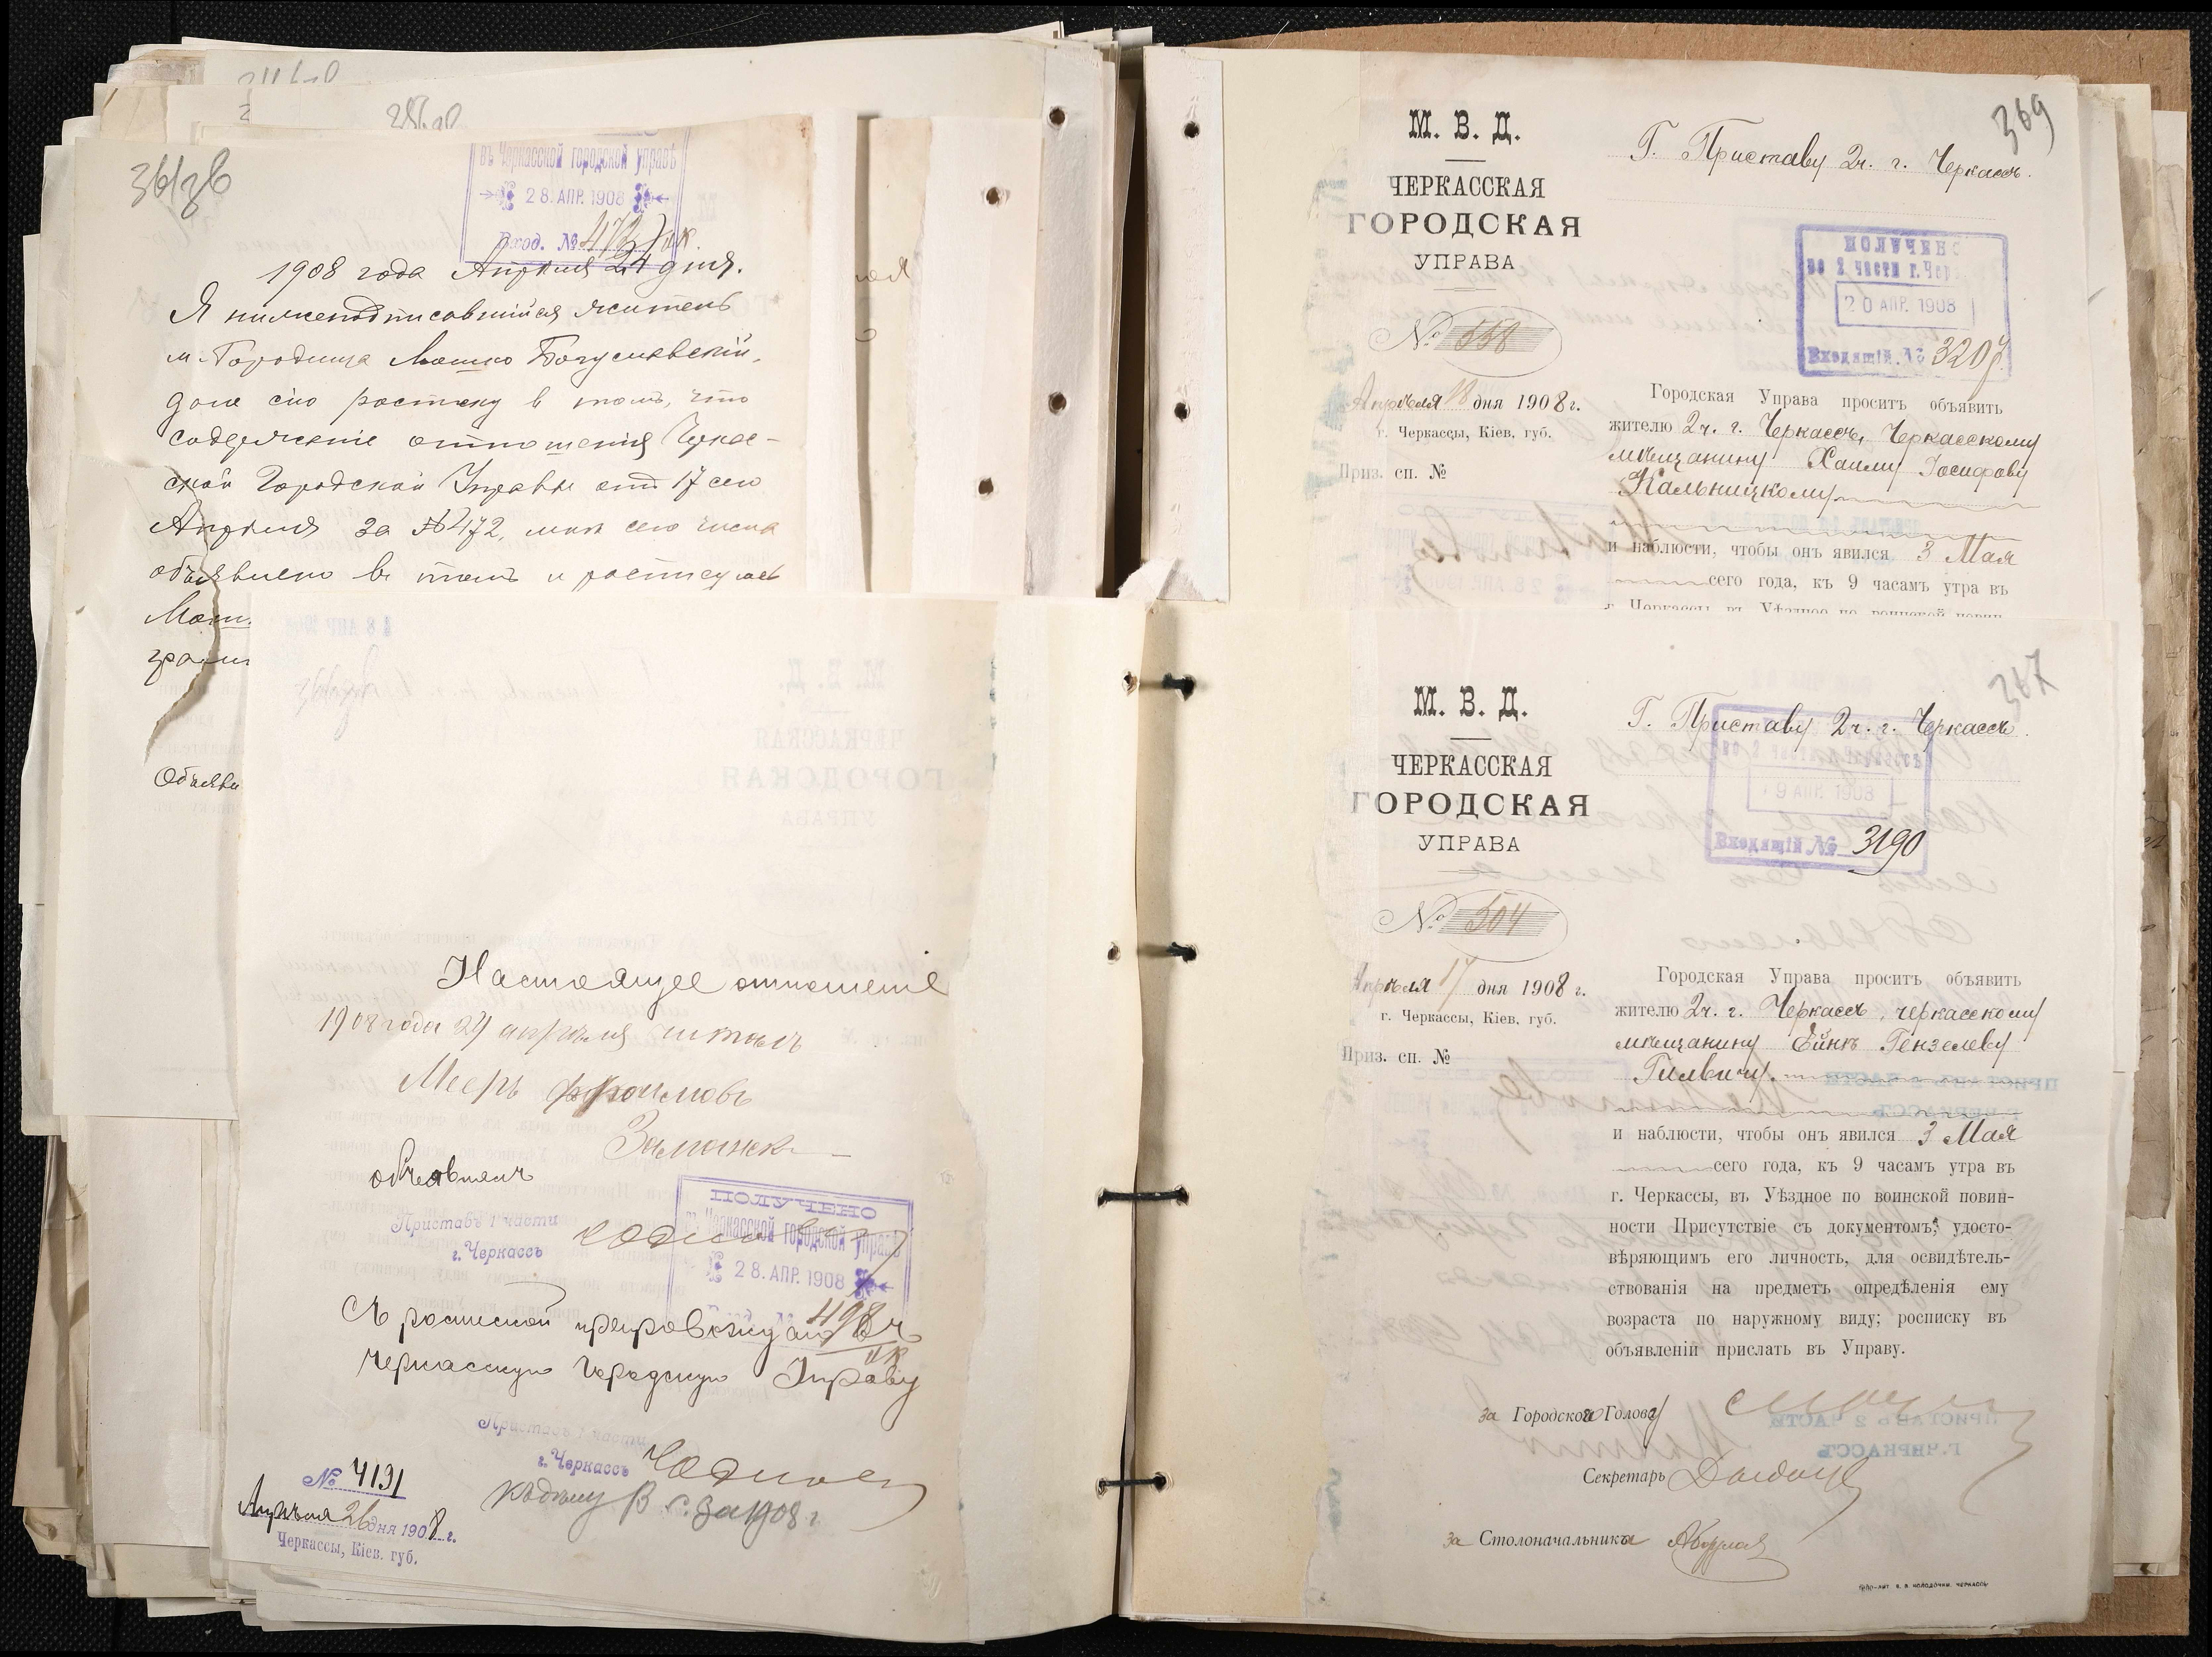 36/зв
въ Черкасской городской управѣ
28. АПР. 1908
Вход. №
1908 года Апрѣля 24 дня.
Я нижеподписавшійся житель
м. Городища Мошко Богуславскій,
даю сію расписку в томъ, что
содержаніе отношенія Черкас-
ской Городской Управы отъ 17 сего
Апрѣля за №472, мнѣ сего числа
объявлено в томъ и росписуюсь
Мош.
Объяви
Настоящее отношеніе
1908 года 24 апрѣля читалъ
Мееръ
объявилъ
Приставъ 1 части
г. Черкассъ
ПОЛУЧЕНО
въ Черкасской городской управѣ
28. АПР. 1908
498
Съ роспиской препровождаю въ
Черкасскую Городскую Управу
Приставъ 1 части
г. Черкассъ
№ 4131
Апрѣля 26 дня 1908 г.
Черкассы, Кіев. губ.
Къ дѣлу В. с. за 1908 г.
369
М. В. Д.
ЧЕРКАССКАЯ
ГОРОДСКАЯ
УПРАВА
№ 558
Апрѣля 18 дня 1908 г.
г. Черкассы, Кіев. губ.
Приз. сп. №
Г. Приставу 2ч. г. Черкассъ.
ПОЛУЧЕНО
во 2 части г. Чер
20 АПР. 1908
Входящій № 3207
Городская Управа проситъ объявить
жителю 2ч. г. Черкассъ, Черкасскому
мѣщанину Хаиму Іосифову
Кальницкому
и наблюсти, чтобы онъ явился 3 Мая
сего года, къ 9 часамъ утра въ
г. Черкассы въ Уѣздное по воинской повин-
367
М. В. Д.
ЧЕРКАССКАЯ
ГОРОДСКАЯ
УПРАВА
№ 504
Апрѣля 17 дня 1908 г.
г. Черкассы, Кіев. губ.
Приз. сп. №
Г. Приставу 2ч. г. Черкассъ.
19 АПР. 1908
Входящій № 3190
Городская Управа проситъ объявить
жителю 2ч. г. Черкассъ, черкасскому
мѣщанину Ейнѣ Гензелеву
Гилвичу.
и наблюсти, чтобы онъ явился 3 Мая
сего года, къ 9 часамъ утра въ
г. Черкассы, въ Уѣздное по воинской повин-
ности Присутствіе съ документомъ, удосто-
вѣряющимъ его личность, для освидѣтель-
ствованія на предметъ опредѣленія ему
возраста по наружному виду; росписку въ
объявленіи прислать въ Управу.
за Городского Голову
Секретарь
за Столоначальника